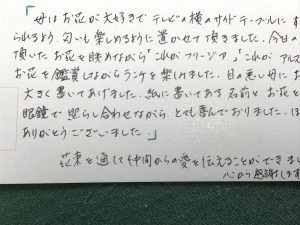 「母はお花が大好きでテレビの横のサイドテーブルにす
られるよう、匂いも楽しめるように置かせて頂きました。今日の
頂いたお花を眺めながら「これがフリージア」「これがアルス
お花を鑑賞しながらランチを楽しみました。目の悪い母にお
大きく書いてあげました。紙に書いてある名前とお花と
眼鏡で照らし合わせながらとても喜んでおりました。は
ありがとうございました。」
花束を通して仲間からの愛を伝えることができまし
心から感謝します